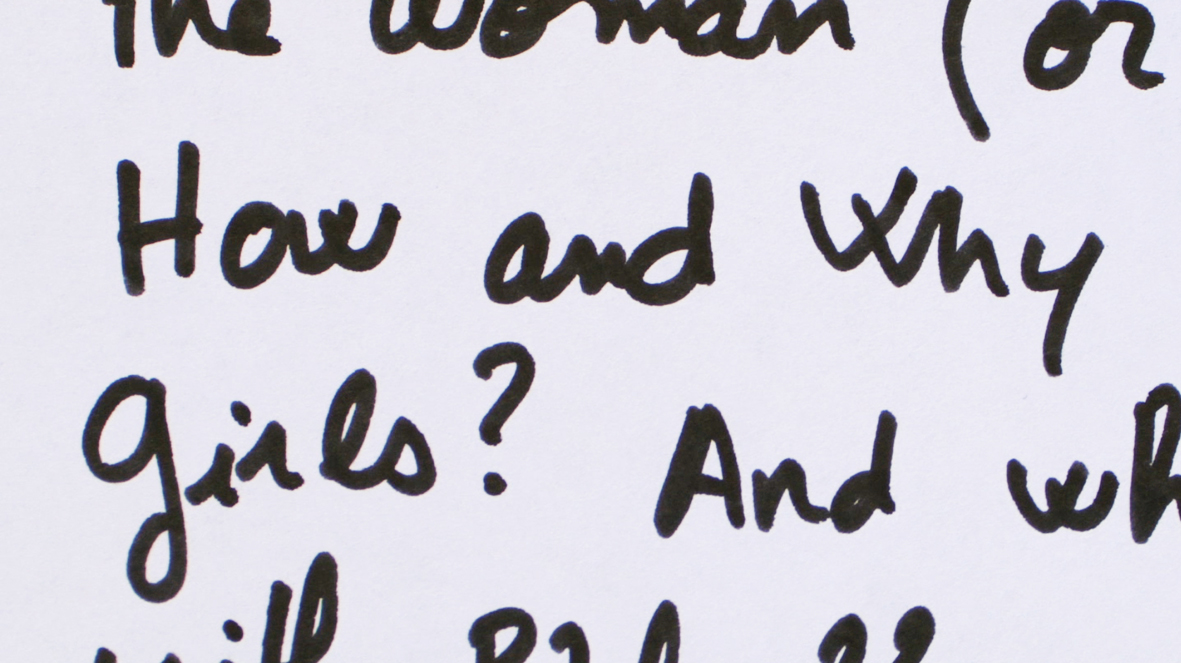 the woman (or
How and why
girls? And wh